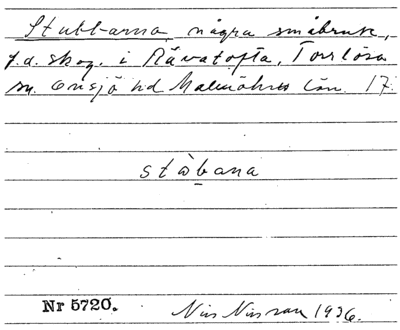 Stubbarna, några småbruk,
f.d. skog. i Råvatofta, Torrlösa
sn. Onsjö hd Malmöhus län. 17.
stòbana
Nr 5720.
Nils Nilsson 1936.